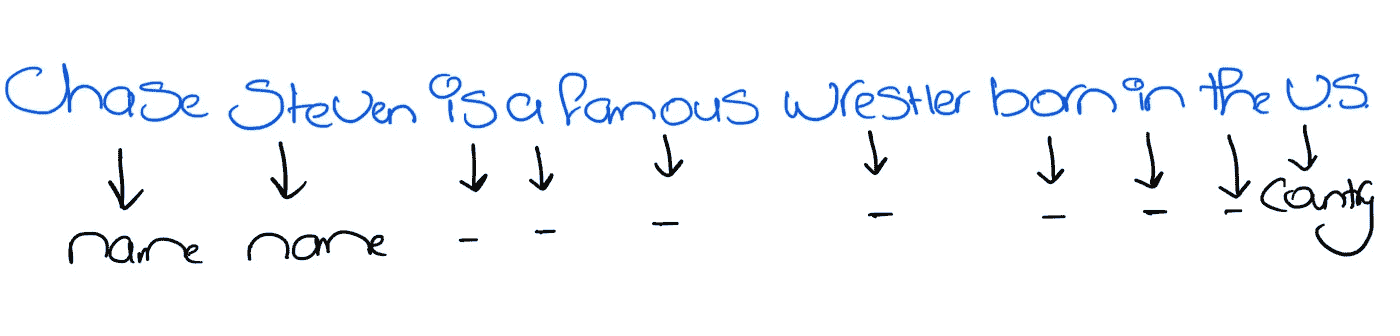 Chase Steven is a famous wrestler born in the U.S.
name name - - - - - - - Country